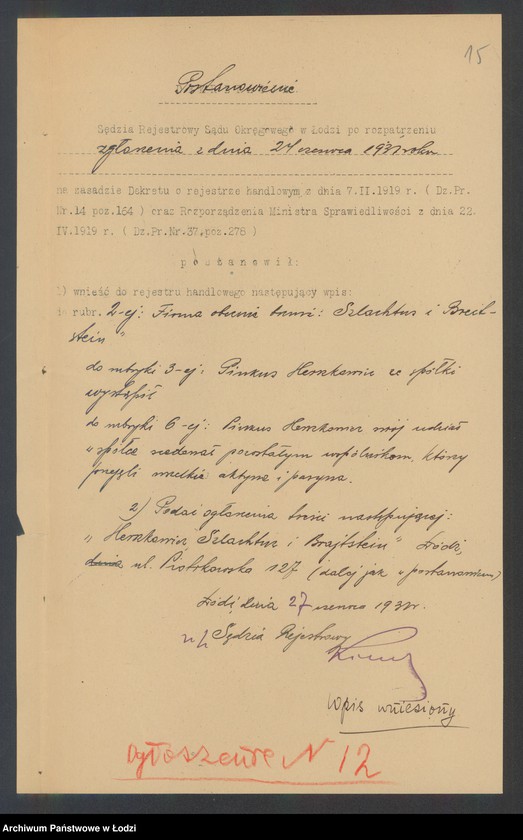 15
Postanowienie
Sędzia Rejestrowy Sądu Okręgowego w Łodzi po rozpatrzeniu
zgłoszenia z dnia 24 czerwca 1931 roku
na zasadzie Dekretu o rejestrze handlowym z dnia 7.II.1919 r. ( Dz.Pr.
Nr.14 poz.164 ) oraz Rozporządzenia Ministra Sprawiedliwości z dnia 22.
IV.1919 r. ( Dz.Pr.Nr.37,poz.278 )
p o s t a n o w i ł:
1) wnieść do rejestru handlowego następujący wpis:
rubr. 2-ej: Firma obecnie brzmi: "Szlachtus i Brait-
stein"
do rubryki 3-ej: Pinkus Herszkowicz ze spółki
wystąpił
do rubryki 6-ej: Pinkus Herszkowicz swój udział
w spółce pozostałym wspólnikom, którzy
przejęli wszelkie aktywa i pasywa.
2) Podać ogłoszenia treści następującej:
"Herszkowicz, Szlachtus i Brajtstein" Łódź,
ul. Piotrkowska 127 (dalej jak w postanowieniu)
Łódź, dnia 27 czerwca 193 r.
Sędzia Rejestrowy
Wpis wniesiony
Ogłoszenie N 12
Archiwum Państwowe w Łodzi